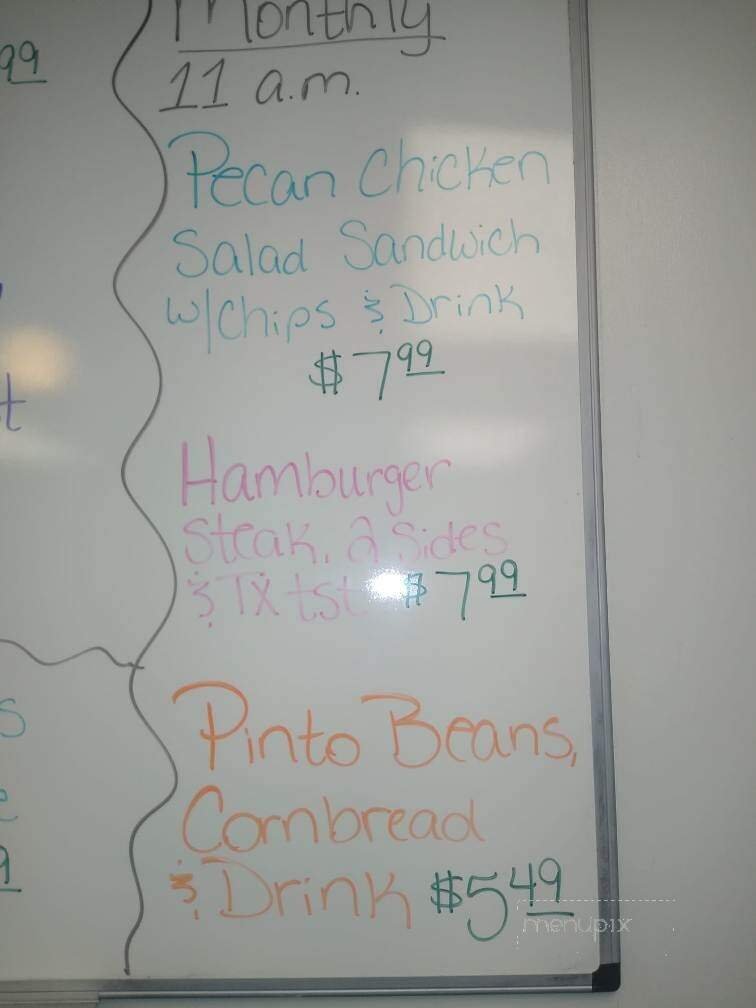 99
Monthly
11 a.m.
Pecan Chicken
Salad Sandwich
w/Chips & Drink
$7.99
t
Hamburger
Steak, 2 Sides
& TX tst $7.99
s
Pinto Beans,
e
Cornbread
9
& Drink $5.49
menupix